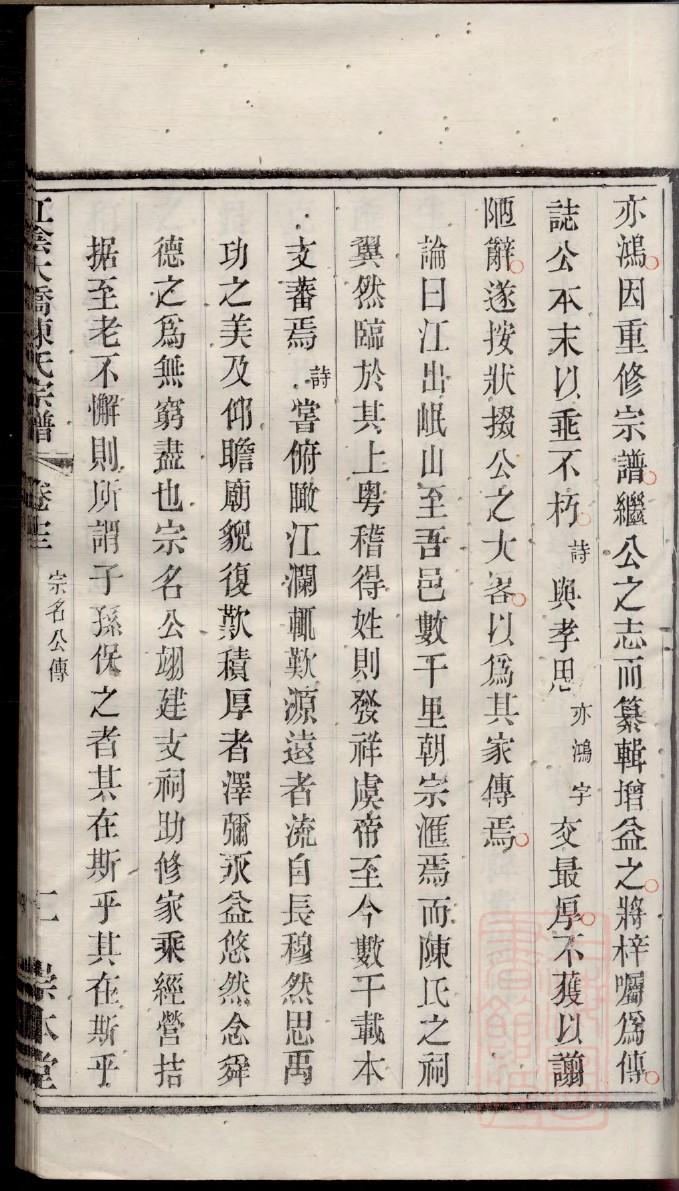 亦鴻因重修宗譜繼公之志而纂輯增益之將梓囑爲傳
誌公本末以垂不朽詩與孝思亦鴻字交最厚不獲以譾
陋辭遂按狀掇公之大畧以爲其家傳焉
論曰江出岷山至吾邑數千里朝宗滙焉而陳氏之祠
翼然臨於其上粤稽得姓則發祥虞帝至今數千載本
支蕃焉詩嘗俯瞰江瀾輒歎源遠者流自長穆然思禹
功之美及仰瞻廟貌復歎積厚者澤彌永益悠然念舜
德之爲無窮盡也宗名公翊建支祠助修家乘經營拮
据至老不懈則所謂子孫保之者其在斯乎其在斯乎
江陰大橋陳氏宗譜 卷 宗名公傳 崇本堂